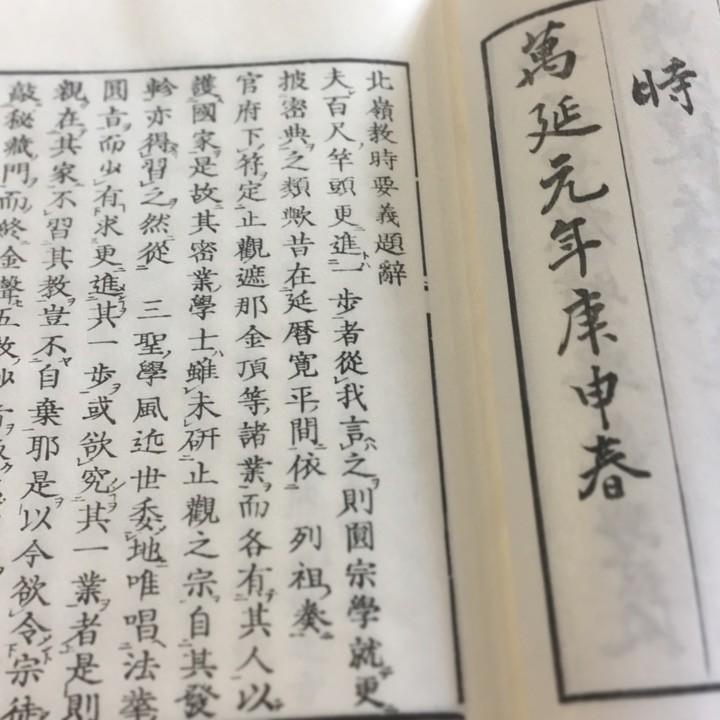 時
萬延元年庚申春
北嶺教時要義題辭
夫百尺竿頭更進一步者從我言之則圓宗學就更
披密典之類歟昔在延曆寬平間依 列祖奏
官府下符定止觀遮那金頂等諸業而各有其人以
護國家是故其密業學士雖未研止觀之宗自其發
軫亦得習之然從 三聖學風近世委地唯唱法華
圓古而少有求更進其一步或欲究其一業者是則
親在其家不習其教豈不自棄耶是以今欲令宗徒
敲秘藏門而終金聲五